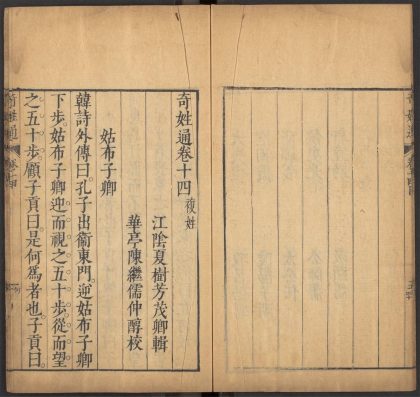 奇姓通卷十四 複姓
江陰夏樹芳茂卿輯
華亭陳繼儒仲醇校
姑布子卿
韓詩外傳曰孔子出衞東門逆姑布子卿
下步姑布子卿迎而視之五十步從而望
之五十步顧子貢曰是何爲者也子貢曰
奇姓通 卷十四